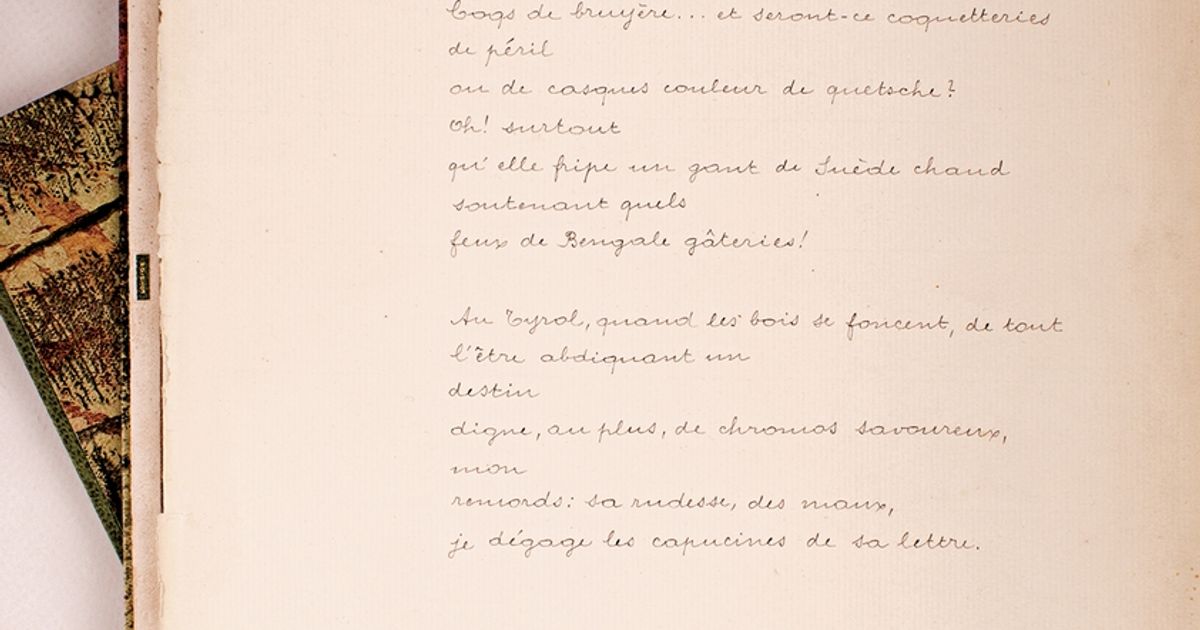 Coqs de bruyère... et seront-ce coquetteries
de péril
ou de casques couleur de quetsche?
Oh! surtout
qu'elle fripe un gant de Suède chaud
soutenant quels
feux de Bengale gâteries!
Au Tyrol, quand les bois se foncent, de tout
l'être abdiquant un
destin
digne, au plus, de chromos savoureux,
mon
remords: sa rudesse, des maux,
je dégage les capucines de sa lettre.